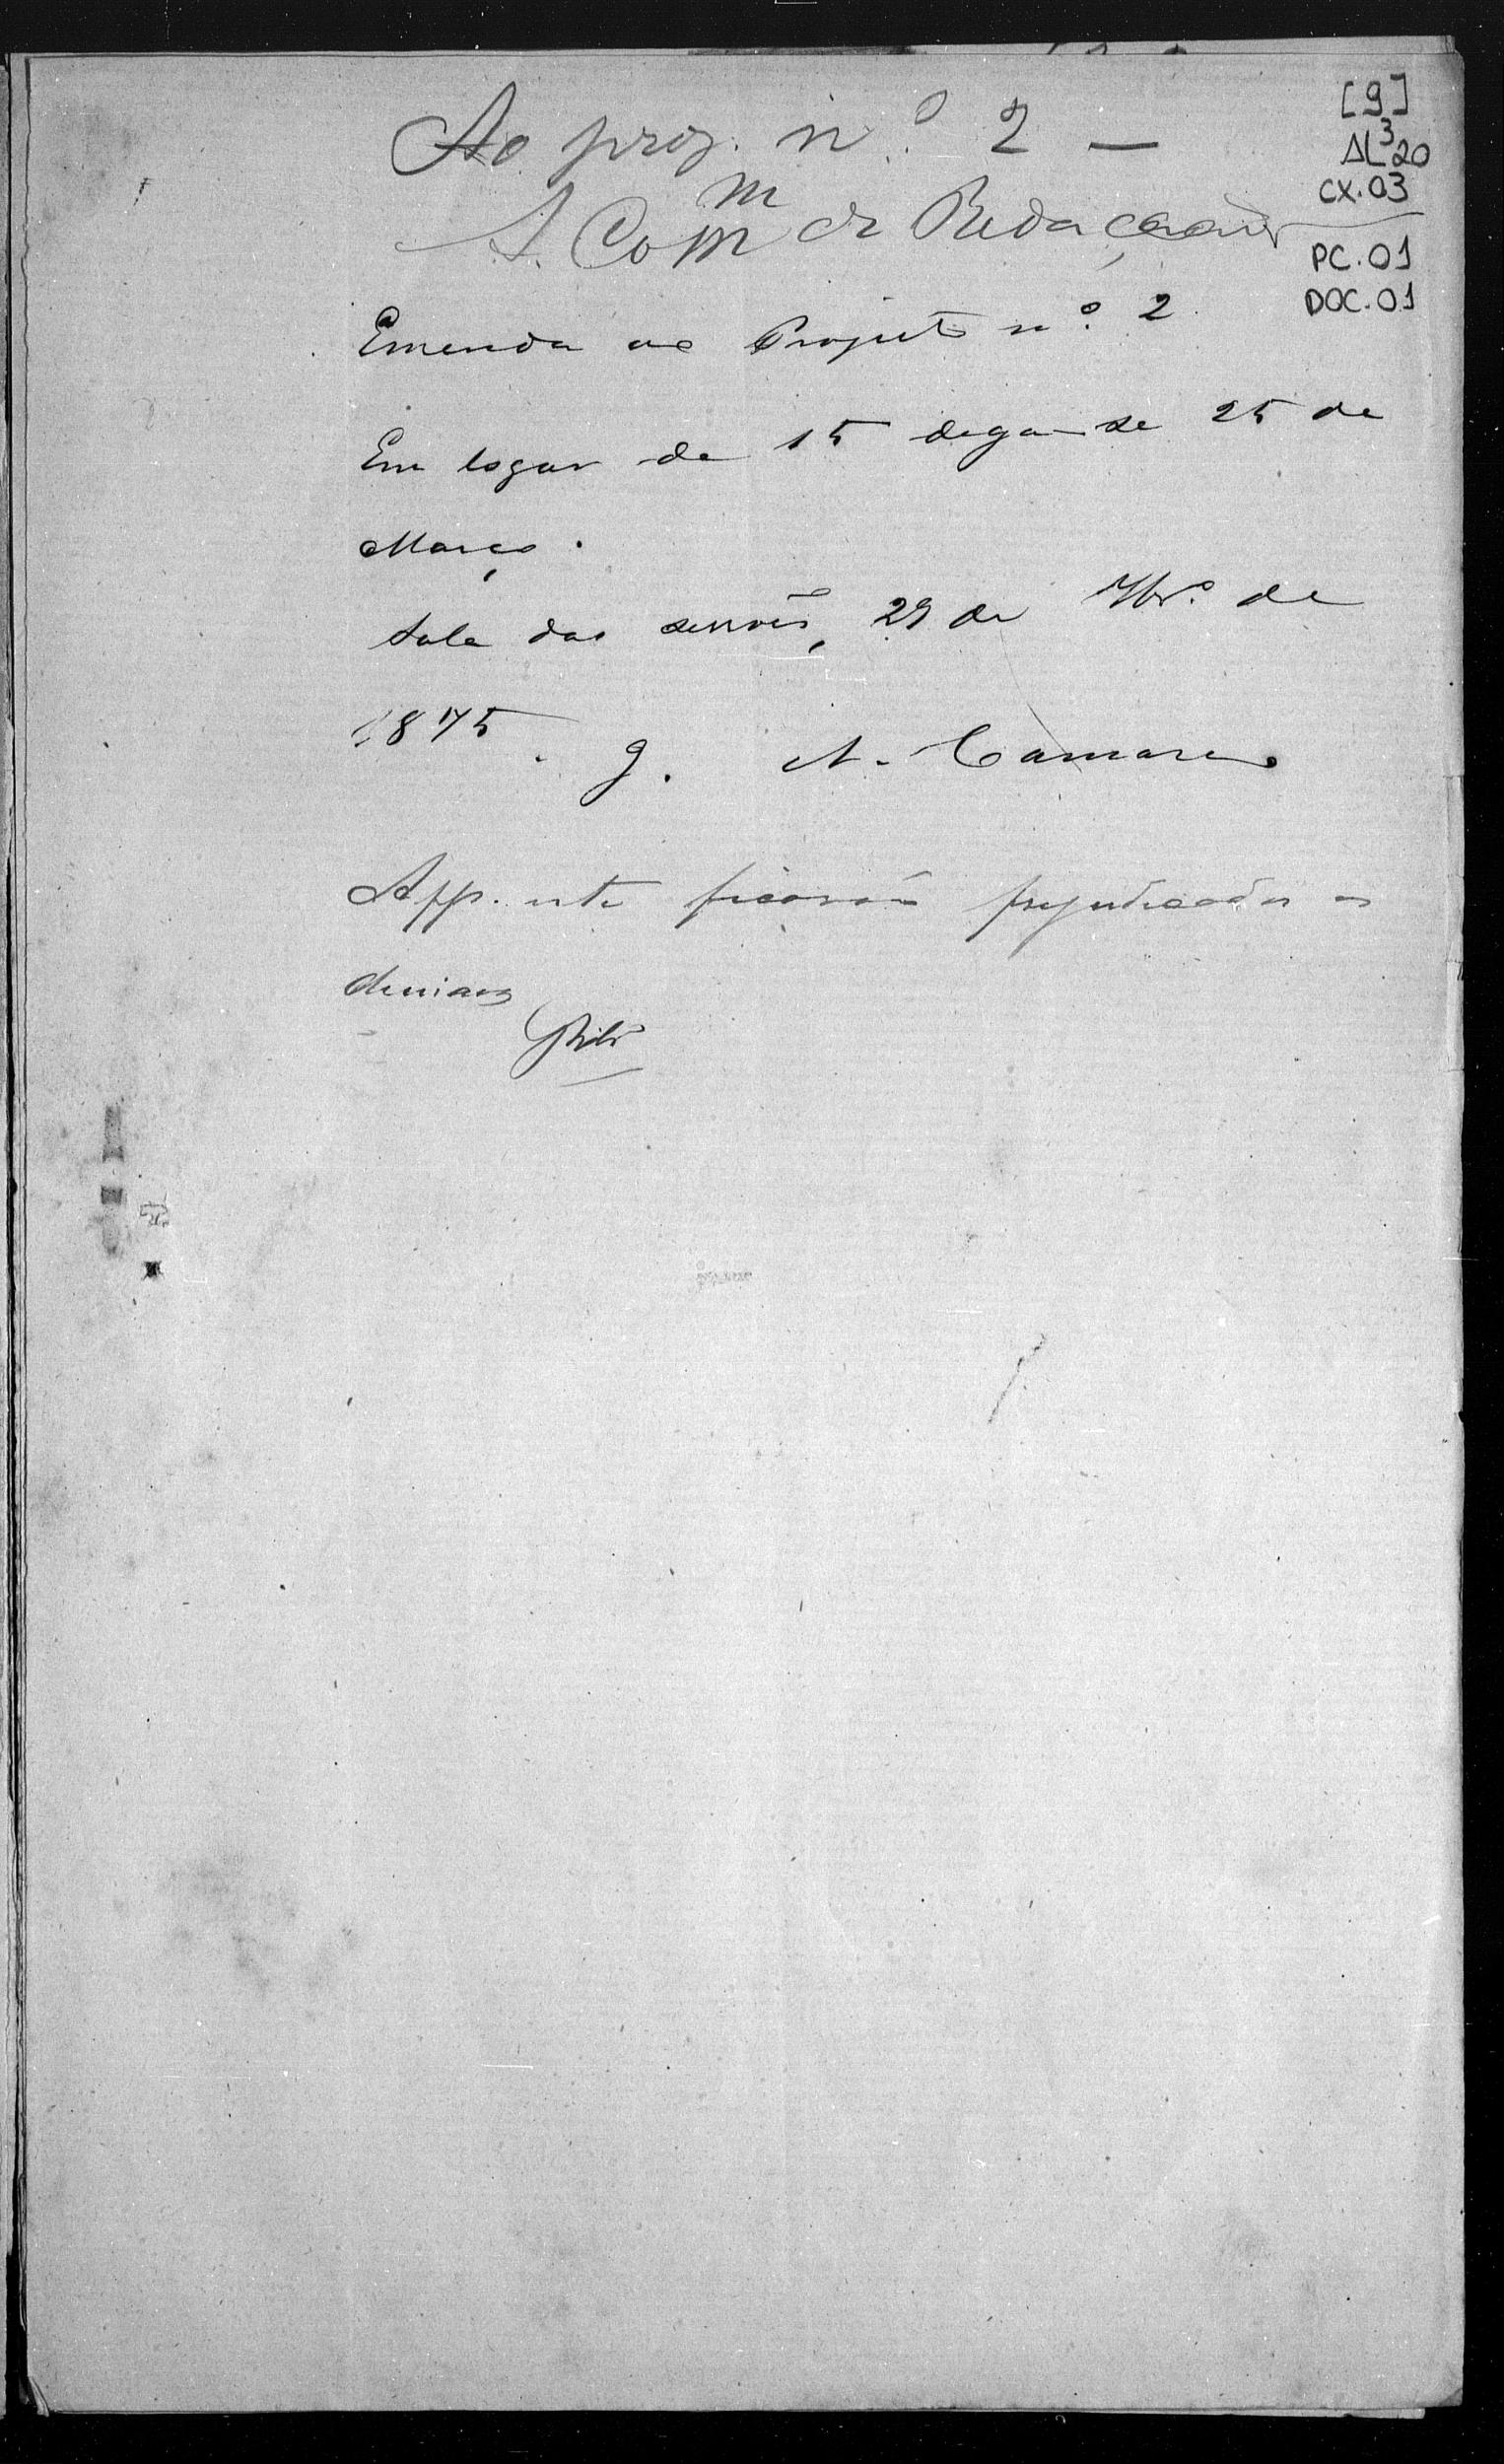 [9]
AL³20
CX.03
PC.01
DOC.01
Ao proj. nº. 2 —
A Comm de Redacção
Emenda ao Projecto nº. 2
Em logar de 15 diga-se 25 de
Março.
Sala das sessões, 29 de 7br.º de
1875. J. A. Camara
App. esta ficarão prejudicadas as
demais